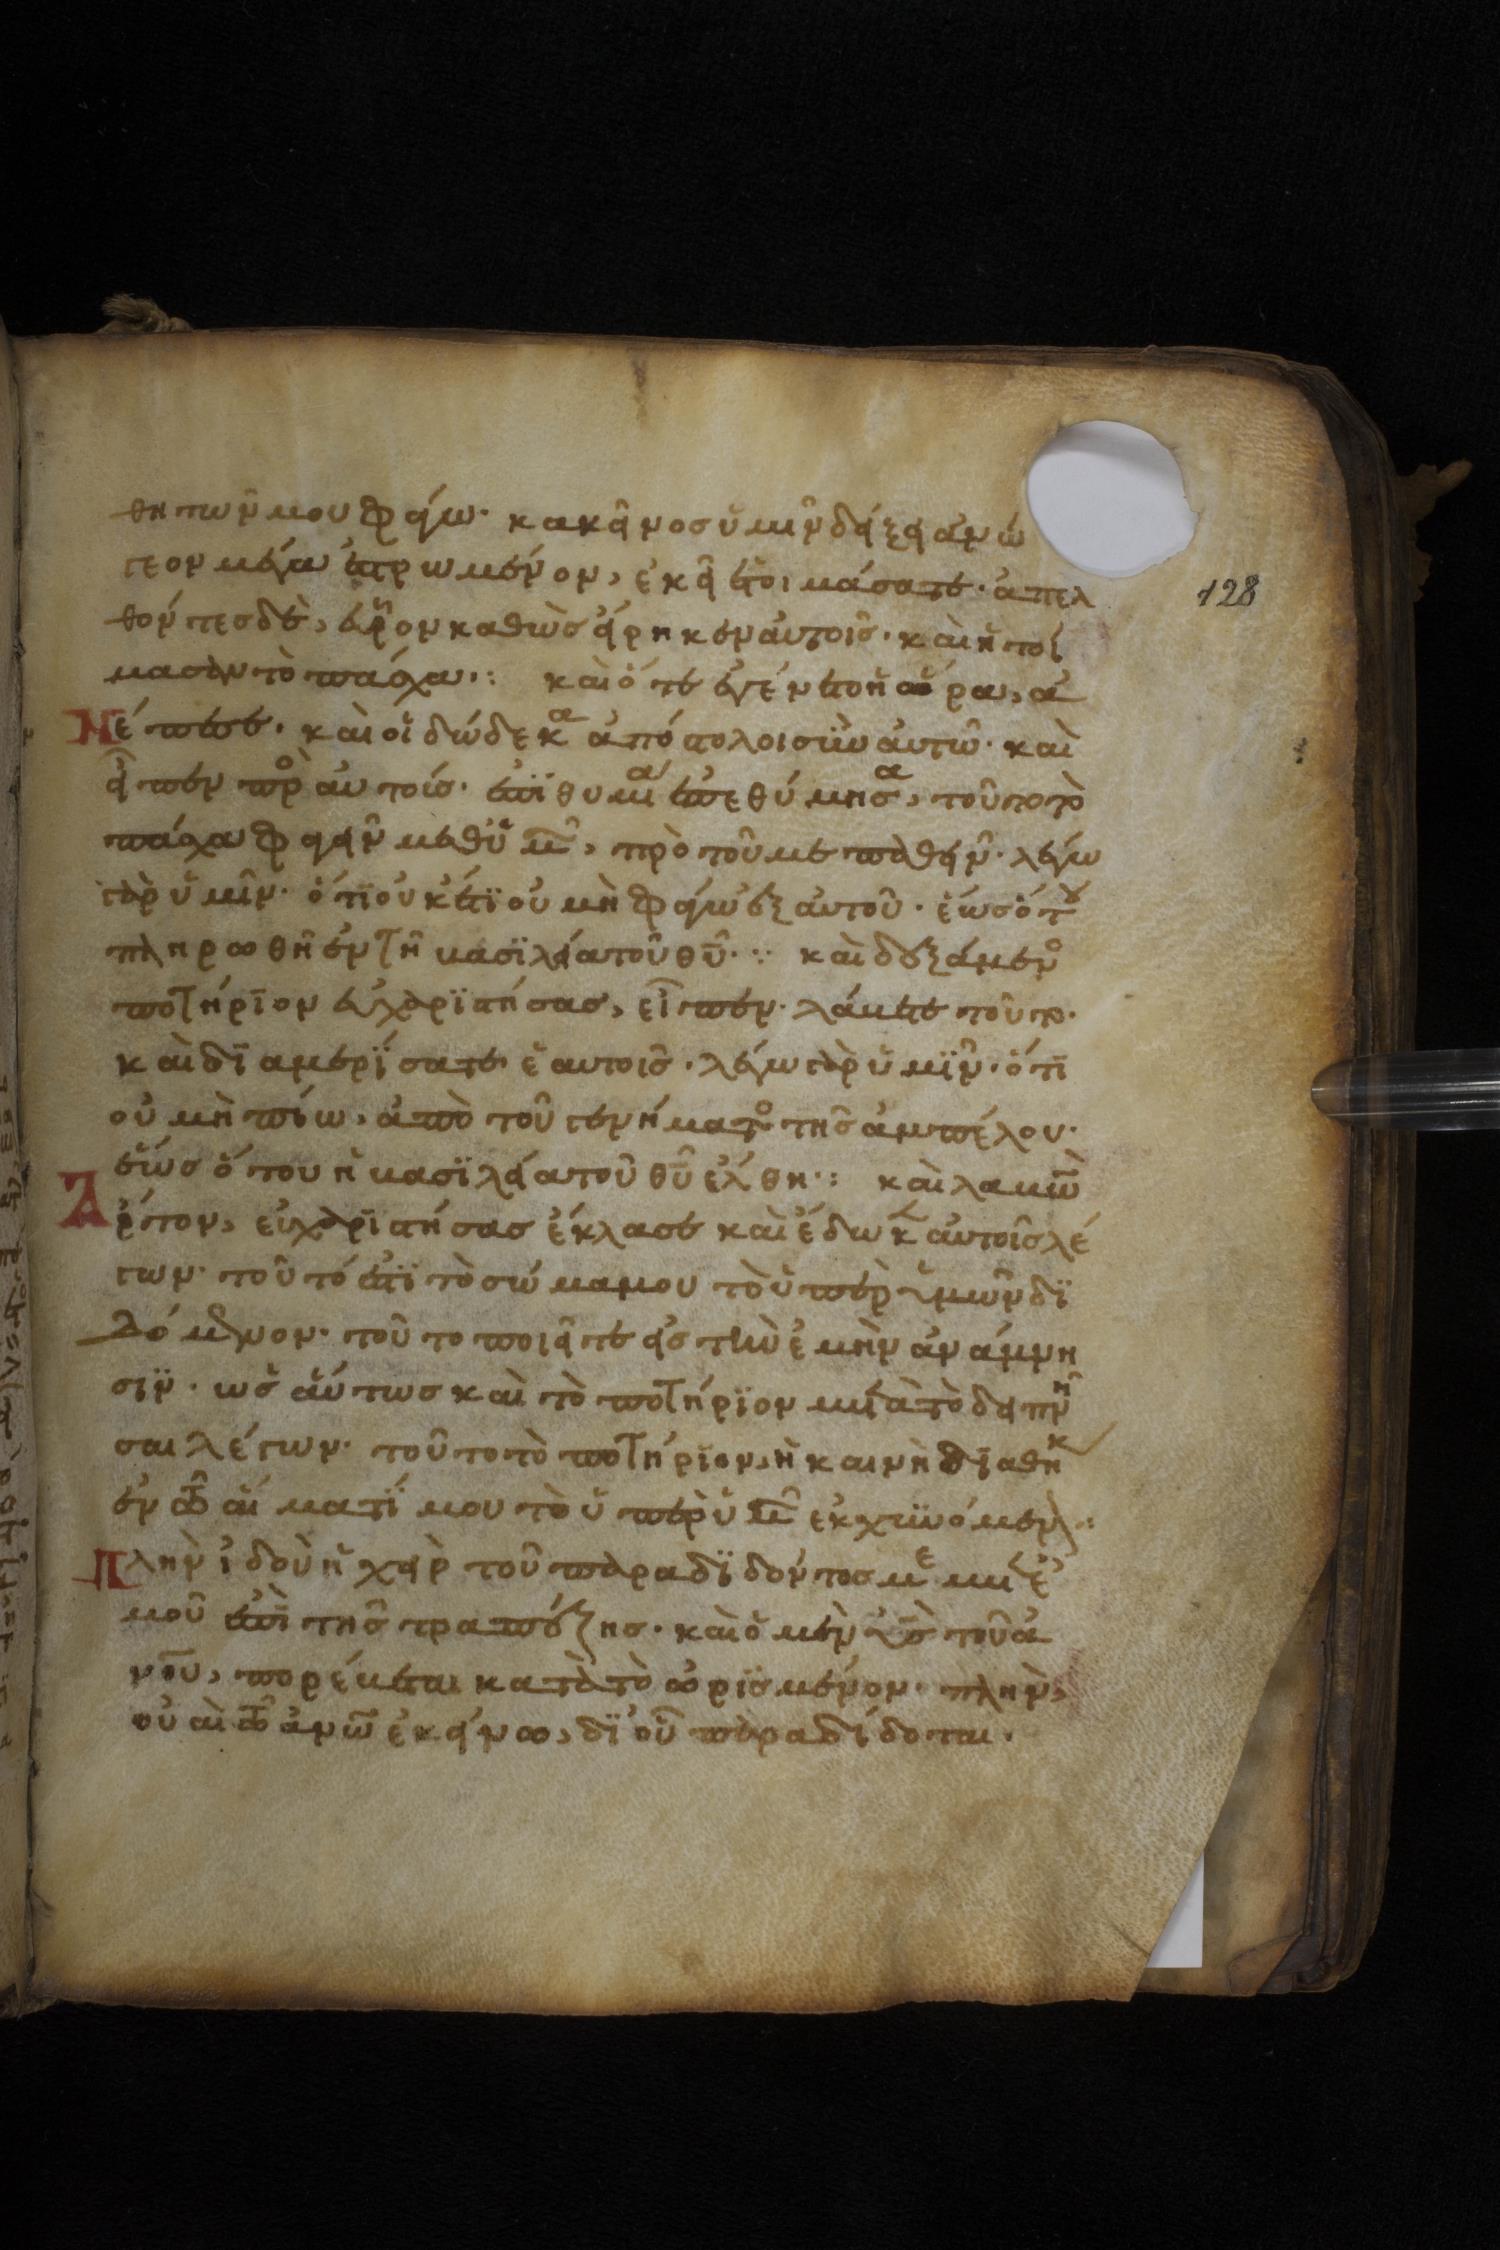 θητων μου φάγω· κακεῖνος ὑμῖν δείξει ἀνώ
γεον μέγα ἐστρωμένον, ἐκεῖ ἑτοιμάσατε· ἀπελ
128
θόντες δὲ, εὗρον καθὼς εἴρηκεν αὐτοῖς· καὶ ἡτοί
μασαν τὸ πάσχα·: καὶ ὅτε ἐγένετο ἡ ὥρα, ἀ
νέπεσε· καὶ οἱ δώδεκα ἀπόστολοι σὺν αὐτῷ· καὶ
εἶπεν πρὸ αὐτούς· ἐπϊθυμία ἐπεθύμησα, τοῦτο τὸ
πάσχα φαγεῖν μεθ' ὑμῶ, πρὸ τοῦ με παθεῖν· λέγω
γὰρ ὑμῖν· ὅτϊ οὐκέτϊ οὐ μὴ φάγω ἐξ αὐτοῦ· ἕως ὅτου
πληρωθῇ ἐν τῇ βασϊλείᾳ τοῦ θυ·: καὶ δεξάμενο
ποτήρϊον εὐχαρϊστήσας, εἶπεν· λάβετε τοῦτο·
καὶ δϊαμερϊσατε ἑαυτοῖς· λέγω γὰρ ὑμῖν· ὅτϊ
οὐ μὴ πίω, ἀπὸ τοῦ γενήματο τῆς ἀμπέλου·
ἕως ὅπου ἡ βασϊλεία τοῦ θυ ἔλθη·: καὶ λαβὼ
ἄρτον, εὐχαρϊστήσας ἔκλασε καὶ ἔδωκ αὐτοῖς λέ
γων· τοῦτό ἐστϊ τὸ σώμα μου τὸ ὑπὲρ ὑμῶν δϊ
δόμενον· τοῦτο ποιεῖτε εἰς τὴν ἐμὴν ἀνάμνη
σϊν· ὡσαύτως καὶ τὸ ποτήρϊον μετὰ τὸ δειπνῆ
σαι λέγων· τοῦτο τὸ ποτήρϊον, ἡ καινὴ δϊαθήκ
ἐν τῷ αἵματϊ μου τὸ ὑπὲρ ὑμῶ ἐκχυνόμεν·:
Πλὴν ἰδοὺ ἡ χεὶρ τοῦ παραδϊδόντος με μετ' ἐ
μοῦ ἐπὶ τῆς τραπέζης· καὶ ὁ μὲν υς τοῦ ἀ
νου, πορεύεται κατὰ τὸ ὡρϊσμένον· πλὴν,
οὐαὶ τῷ ἀνω ἐκείνω, δϊ' οὗ παραδίδοται·